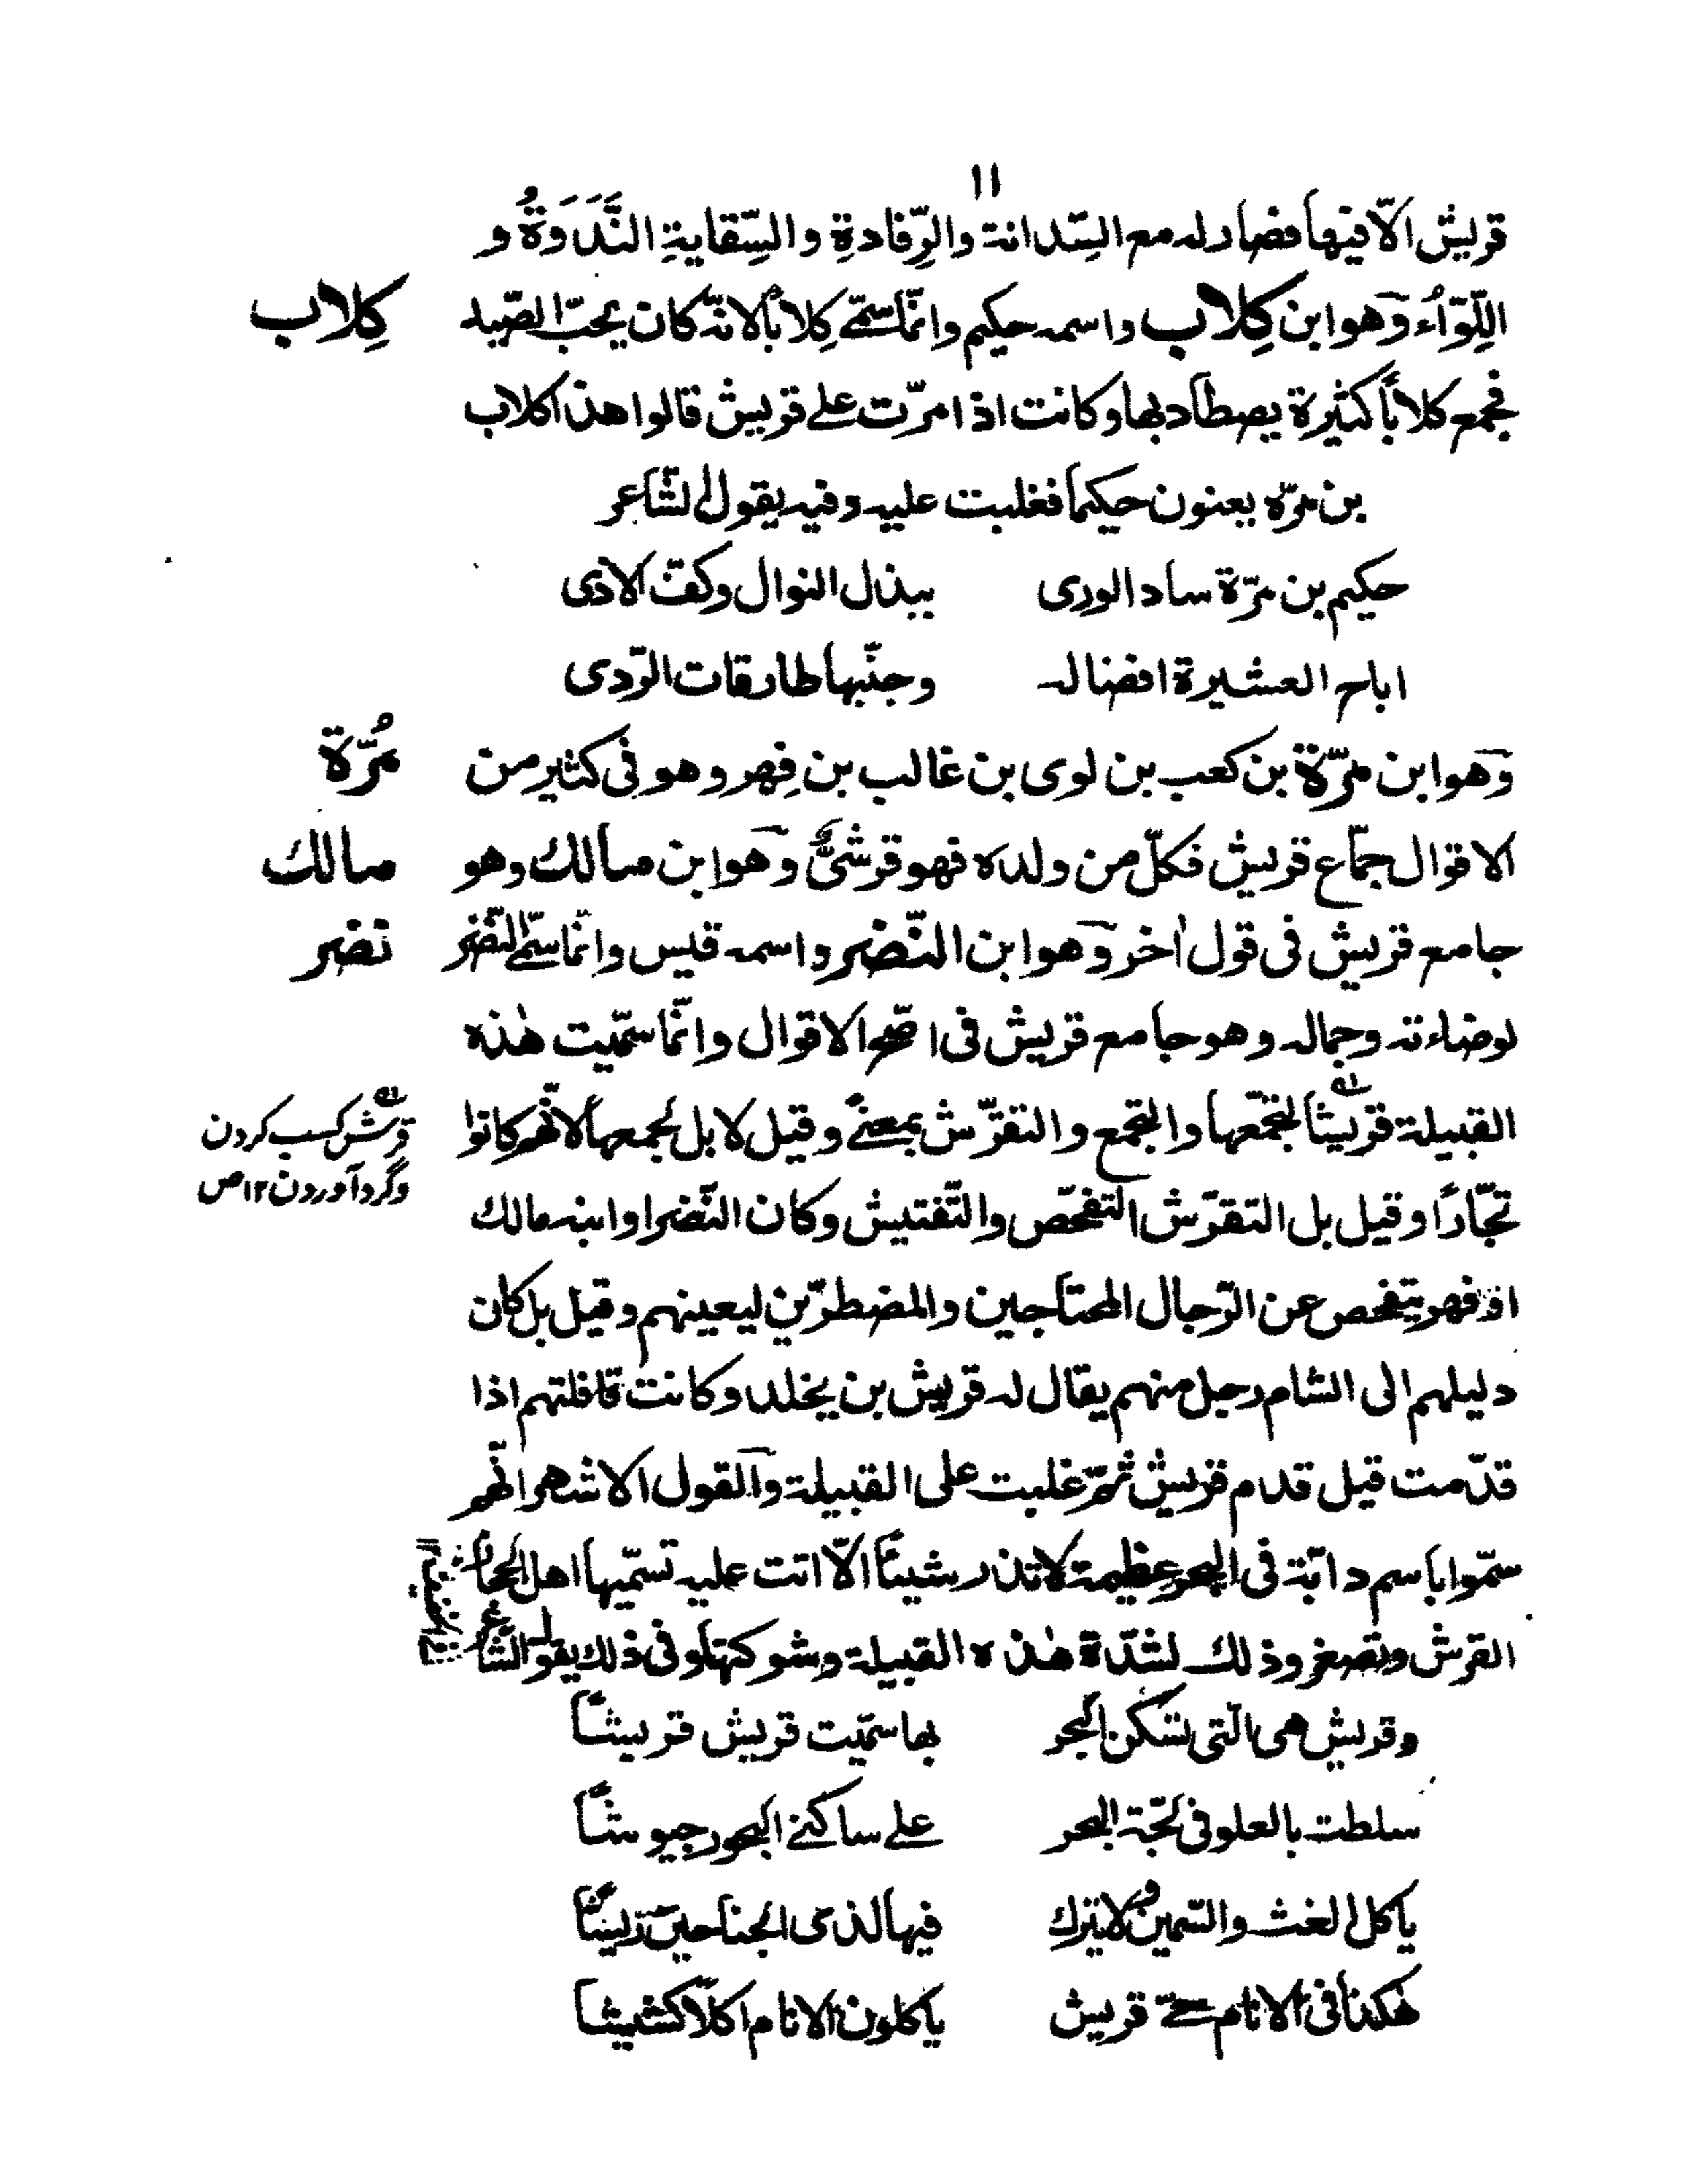 ١١
قریش الّا فیها فصار له مع السِّدانة والرِّفادةِ والسِّقایةِ النَّدَوَةُ و
اللِّوَآءُ وَهوابن كِلاب واسمه حکیم وانّما سمّے کِلاباً لانّه کان یحبّ الصّید
كِلاب
فجمع کلاباً کثیرة یصطاد بها وکانت اذا مرّت علے قریش قالوا هذا کلاب
بن مرّه یعنون حیکما فغلبت علیه وفیه یقول الشّاعر
حکیم بن مرّة ساد الوری ببذل النوال وکفّ الاذی
اباح العشیرة افضاله وجنّبها طارقات الرّدی
وَهوابن مرّة بن کعب بن لوی بن غالب بن فِهر وهو فی کثیر من
مُرّة
الاقوال جمّاع قریش فکلّ من ولده فهو قرشیٌّ وَهوابن مالك وهو
مالك
جامع قریش فی قول اٰخر وَهوابن النّضر واسمه قیس وانّما سمّے النّضر
نضر
لوضاءته وجماله وهو جامع قریش فی اصّح الاقوال وانّما سمّیت هٰذه
القبیلة قریشًا لتجمّعها والتجمع والتقرّش بمعنے وقیل لا بل لجمعها لانّهم کانوا
قرش کسب کردن
وگرد آوردن ١٢ص
تجّارًا وقیل بل التقرّش التفحّص والتّفتیش وکان النّضر او ابنه مالك
او فهر یتفحص عن الرّجال المحتاجین والمضطرّین لیعینهم وقیل بل کان
دلیلهم الی الشام رجل منهم یقال له قریش بن یخلد وکانت قافلتهم اذا
قدّمت قیل قدام قریش ثمّ غلبت علی القبیلة وَالقول الاشهر انّهم
سمّوا باسم دابّة فی البحر عظیمة لا تذر شیئاً الّا اتت علیه تسمّیها اهل الحجاز
القرش وتصغر وذلك لشدّة هٰذه القبیلة وشوکتها وفی ذلك یقول الشّاعر
وقریش هی الّتی تسکن البحر بها سمّیت قریش قریشاً
سلطت بالعلو فی لجّة البحر علے ساکنے البحور جیوشاً
یاکل الغث والسّمین ولا یترك فیها لذی الجناحین ریشًا
هٰکذا فی الانام حیّ قریش یاکلون الانام اکلًا کشیشا